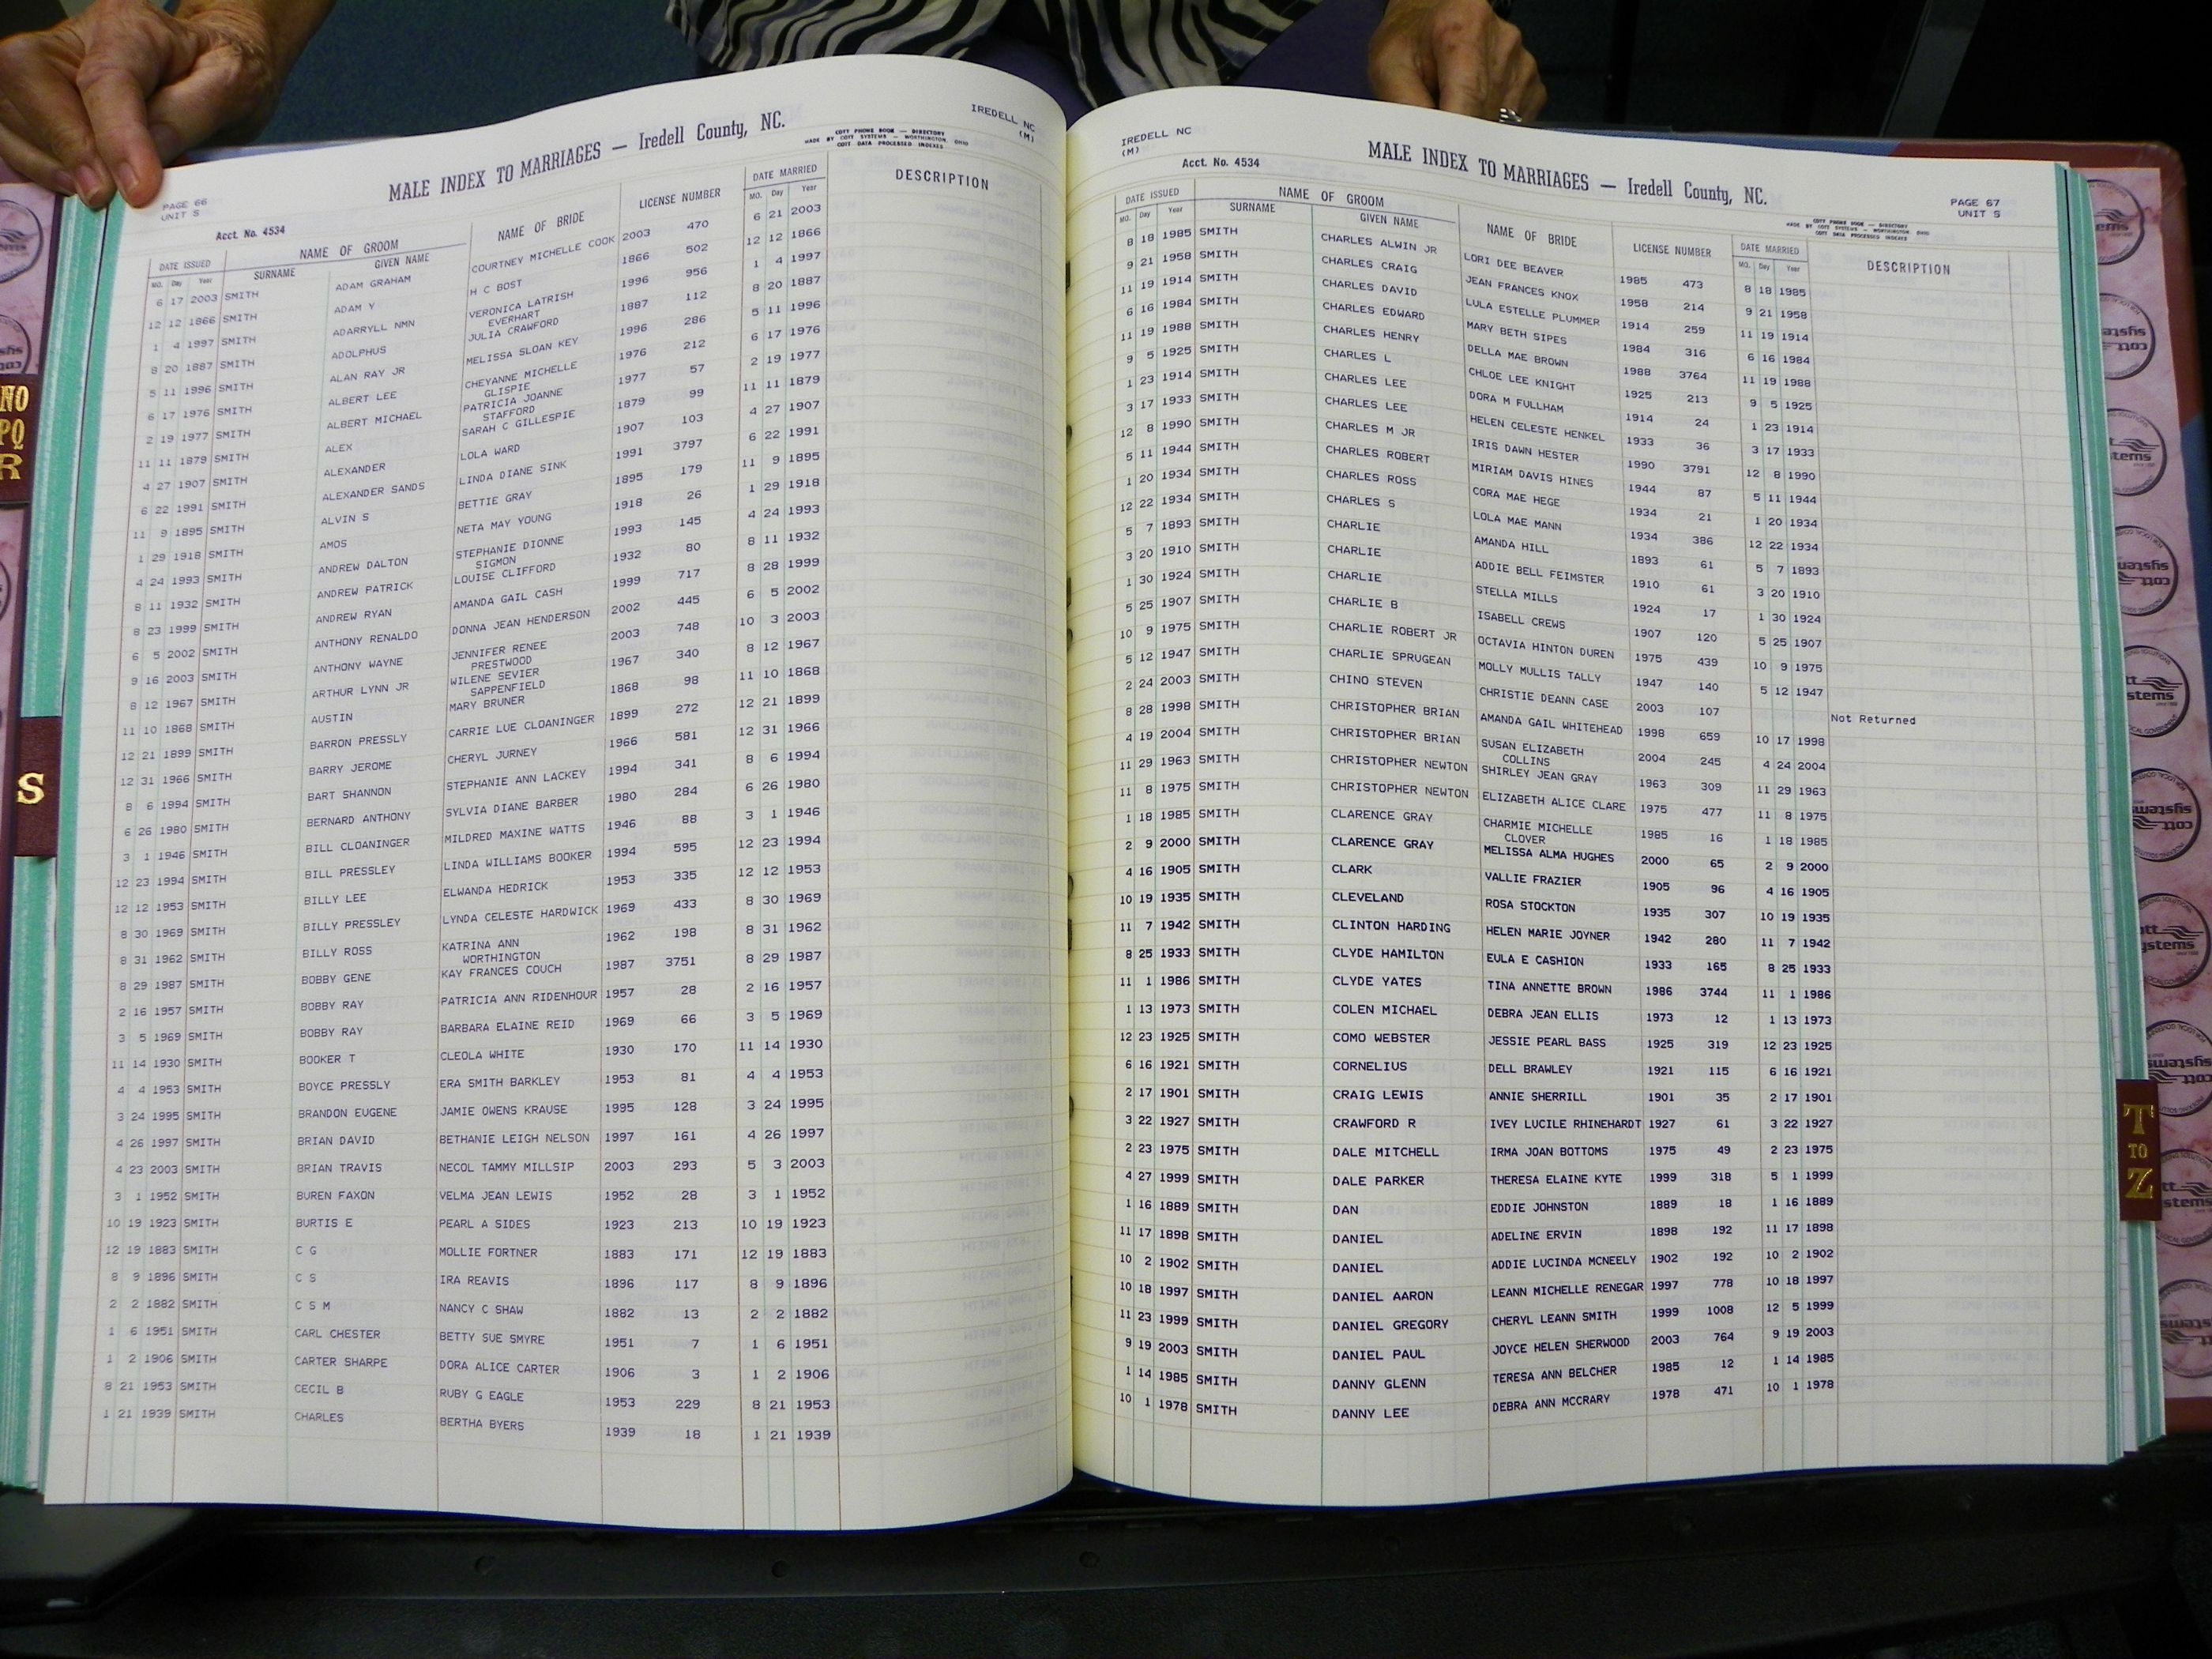 IREDELL NC
(M)
MALE INDEX TO MARRIAGES — Iredell County, NC.
COTT PHONE BOOK — DIRECTORY
MADE BY COTT SYSTEMS — WORTHINGTON OHIO
COTT DATA PROCESSED INDEXES
PAGE 66
UNIT S
Acct. No. 4534
DATE ISSUED NAME OF GROOM NAME OF BRIDE LICENSE NUMBER DATE MARRIED DESCRIPTION
MO. Day Year SURNAME GIVEN NAME MO. Day Year
6 17 2003 SMITH ADAM GRAHAM COURTNEY MICHELLE COOK 2003 470 6 21 2003
12 12 1866 SMITH ADAM Y H C BOST 1866 502 12 12 1866
1 4 1997 SMITH ADARRYLL NMN VERONICA LATRISH 1996 956 1 4 1997
EVERHART
8 20 1887 SMITH ADOLPHUS JULIA CRAWFORD 1887 112 8 20 1887
5 11 1996 SMITH ALAN RAY JR MELISSA SLOAN KEY 1996 286 5 11 1996
6 17 1976 SMITH ALBERT LEE CHEYANNE MICHELLE 1976 212 6 17 1976
GLISPIE
2 19 1977 SMITH ALBERT MICHAEL PATRICIA JOANNE 1977 57 2 19 1977
STAFFORD
11 11 1879 SMITH ALEX SARAH C GILLESPIE 1879 99 11 11 1879
4 27 1907 SMITH ALEXANDER LOLA WARD 1907 103 4 27 1907
6 22 1991 SMITH ALEXANDER SANDS LINDA DIANE SINK 1991 3797 6 22 1991
11 9 1895 SMITH ALVIN S BETTIE GRAY 1895 179 11 9 1895
1 29 1918 SMITH AMOS NETA MAY YOUNG 1918 26 1 29 1918
4 24 1993 SMITH ANDREW DALTON STEPHANIE DIONNE 1993 145 4 24 1993
SIGMON
8 11 1932 SMITH ANDREW PATRICK LOUISE CLIFFORD 1932 80 8 11 1932
8 23 1999 SMITH ANDREW RYAN AMANDA GAIL CASH 1999 717 8 28 1999
6 5 2002 SMITH ANTHONY RENALDO DONNA JEAN HENDERSON 2002 445 6 5 2002
9 16 2003 SMITH ANTHONY WAYNE JENNIFER RENEE 2003 748 10 3 2003
PRESTWOOD
8 12 1967 SMITH ARTHUR LYNN JR WILENE SEVIER 1967 340 8 12 1967
SAPPENFIELD
11 10 1868 SMITH AUSTIN MARY BRUNER 1868 98 11 10 1868
12 21 1899 SMITH BARRON PRESSLY CARRIE LUE CLOANINGER 1899 272 12 21 1899
12 31 1966 SMITH BARRY JEROME CHERYL JURNEY 1966 581 12 31 1966
8 6 1994 SMITH BART SHANNON STEPHANIE ANN LACKEY 1994 341 8 6 1994
6 26 1980 SMITH BERNARD ANTHONY SYLVIA DIANE BARBER 1980 284 6 26 1980
3 1 1946 SMITH BILL CLOANINGER MILDRED MAXINE WATTS 1946 88 3 1 1946
12 23 1994 SMITH BILL PRESSLEY LINDA WILLIAMS BOOKER 1994 595 12 23 1994
12 12 1953 SMITH BILLY LEE ELWANDA HEDRICK 1953 335 12 12 1953
8 30 1969 SMITH BILLY PRESSLEY LYNDA CELESTE HARDWICK 1969 433 8 30 1969
8 31 1962 SMITH BILLY ROSS KATRINA ANN 1962 198 8 31 1962
WORTHINGTON
8 29 1987 SMITH BOBBY GENE KAY FRANCES COUCH 1987 3751 8 29 1987
2 16 1957 SMITH BOBBY RAY PATRICIA ANN RIDENHOUR 1957 28 2 16 1957
3 5 1969 SMITH BOBBY RAY BARBARA ELAINE REID 1969 66 3 5 1969
11 14 1930 SMITH BOOKER T CLEOLA WHITE 1930 170 11 14 1930
4 4 1953 SMITH BOYCE PRESSLY ERA SMITH BARKLEY 1953 81 4 4 1953
3 24 1995 SMITH BRANDON EUGENE JAMIE OWENS KRAUSE 1995 128 3 24 1995
4 26 1997 SMITH BRIAN DAVID BETHANIE LEIGH NELSON 1997 161 4 26 1997
4 23 2003 SMITH BRIAN TRAVIS NECOL TAMMY MILLSIP 2003 293 5 3 2003
3 1 1952 SMITH BUREN FAXON VELMA JEAN LEWIS 1952 28 3 1 1952
10 19 1923 SMITH BURTIS E PEARL A SIDES 1923 213 10 19 1923
12 19 1883 SMITH C G MOLLIE FORTNER 1883 171 12 19 1883
8 9 1896 SMITH C S IRA REAVIS 1896 117 8 9 1896
2 2 1882 SMITH C S M NANCY C SHAW 1882 13 2 2 1882
1 6 1951 SMITH CARL CHESTER BETTY SUE SMYRE 1951 7 1 6 1951
1 2 1906 SMITH CARTER SHARPE DORA ALICE CARTER 1906 3 1 2 1906
8 21 1953 SMITH CECIL B RUBY G EAGLE 1953 229 8 21 1953
1 21 1939 SMITH CHARLES BERTHA BYERS 1939 18 1 21 1939
IREDELL NC
(M)
Acct. No. 4534
MALE INDEX TO MARRIAGES — Iredell County, NC.
PAGE 67
UNIT S
COTT PHONE BOOK — DIRECTORY
MADE BY COTT SYSTEMS — WORTHINGTON OHIO
COTT DATA PROCESSED INDEXES
DATE ISSUED NAME OF GROOM NAME OF BRIDE LICENSE NUMBER DATE MARRIED DESCRIPTION
MO. Day Year SURNAME GIVEN NAME MO. Day Year
8 18 1985 SMITH CHARLES ALWIN JR LORI DEE BEAVER 1985 473 8 18 1985
9 21 1958 SMITH CHARLES CRAIG JEAN FRANCES KNOX 1958 214 9 21 1958
11 19 1914 SMITH CHARLES DAVID LULA ESTELLE PLUMMER 1914 259 11 19 1914
6 16 1984 SMITH CHARLES EDWARD MARY BETH SIPES 1984 316 6 16 1984
11 19 1988 SMITH CHARLES HENRY DELLA MAE BROWN 1988 3764 11 19 1988
9 5 1925 SMITH CHARLES L CHLOE LEE KNIGHT 1925 213 9 5 1925
1 23 1914 SMITH CHARLES LEE DORA M FULLHAM 1914 24 1 23 1914
3 17 1933 SMITH CHARLES LEE HELEN CELESTE HENKEL 1933 36 3 17 1933
12 8 1990 SMITH CHARLES M JR IRIS DAWN HESTER 1990 3791 12 8 1990
5 11 1944 SMITH CHARLES ROBERT MIRIAM DAVIS HINES 1944 87 5 11 1944
1 20 1934 SMITH CHARLES ROSS CORA MAE HEGE 1934 21 1 20 1934
12 22 1934 SMITH CHARLES S LOLA MAE MANN 1934 386 12 22 1934
5 7 1893 SMITH CHARLIE AMANDA HILL 1893 61 5 7 1893
3 20 1910 SMITH CHARLIE ADDIE BELL FEIMSTER 1910 61 3 20 1910
1 30 1924 SMITH CHARLIE STELLA MILLS 1924 17 1 30 1924
5 25 1907 SMITH CHARLIE B ISABELL CREWS 1907 120 5 25 1907
10 9 1975 SMITH CHARLIE ROBERT JR OCTAVIA HINTON DUREN 1975 439 10 9 1975
5 12 1947 SMITH CHARLIE SPRUGEAN MOLLY MULLIS TALLY 1947 140 5 12 1947
2 24 2003 SMITH CHINO STEVEN CHRISTIE DEANN CASE 2003 107 Not Returned
8 28 1998 SMITH CHRISTOPHER BRIAN AMANDA GAIL WHITEHEAD 1998 659 10 17 1998
4 19 2004 SMITH CHRISTOPHER BRIAN SUSAN ELIZABETH 2004 245 4 24 2004
COLLINS
11 29 1963 SMITH CHRISTOPHER NEWTON SHIRLEY JEAN GRAY 1963 309 11 29 1963
11 8 1975 SMITH CHRISTOPHER NEWTON ELIZABETH ALICE CLARE 1975 477 11 8 1975
1 18 1985 SMITH CLARENCE GRAY CHARMIE MICHELLE 1985 16 1 18 1985
CLOVER
2 9 2000 SMITH CLARENCE GRAY MELISSA ALMA HUGHES 2000 65 2 9 2000
4 16 1905 SMITH CLARK VALLIE FRAZIER 1905 96 4 16 1905
10 19 1935 SMITH CLEVELAND ROSA STOCKTON 1935 307 10 19 1935
11 7 1942 SMITH CLINTON HARDING HELEN MARIE JOYNER 1942 280 11 7 1942
8 25 1933 SMITH CLYDE HAMILTON EULA E CASHION 1933 165 8 25 1933
11 1 1986 SMITH CLYDE YATES TINA ANNETTE BROWN 1986 3744 11 1 1986
1 13 1973 SMITH COLEN MICHAEL DEBRA JEAN ELLIS 1973 12 1 13 1973
12 23 1925 SMITH COMO WEBSTER JESSIE PEARL BASS 1925 319 12 23 1925
6 16 1921 SMITH CORNELIUS DELL BRAWLEY 1921 115 6 16 1921
2 17 1901 SMITH CRAIG LEWIS ANNIE SHERRILL 1901 35 2 17 1901
3 22 1927 SMITH CRAWFORD R IVEY LUCILE RHINEHARDT 1927 61 3 22 1927
2 23 1975 SMITH DALE MITCHELL IRMA JOAN BOTTOMS 1975 49 2 23 1975
4 27 1999 SMITH DALE PARKER THERESA ELAINE KYTE 1999 318 5 1 1999
1 16 1889 SMITH DAN EDDIE JOHNSTON 1889 18 1 16 1889
11 17 1898 SMITH DANIEL ADELINE ERVIN 1898 192 11 17 1898
10 2 1902 SMITH DANIEL ADDIE LUCINDA MCNEELY 1902 192 10 2 1902
10 18 1997 SMITH DANIEL AARON LEANN MICHELLE RENEGAR 1997 778 10 18 1997
11 23 1999 SMITH DANIEL GREGORY CHERYL LEANN SMITH 1999 1008 12 5 1999
9 19 2003 SMITH DANIEL PAUL JOYCE HELEN SHERWOOD 2003 764 9 19 2003
1 14 1985 SMITH DANNY GLENN TERESA ANN BELCHER 1985 12 1 14 1985
10 1 1978 SMITH DANNY LEE DEBRA ANN MCCRARY 1978 471 10 1 1978
NO
PQ
R
S
T
TO
Z
cott
systems